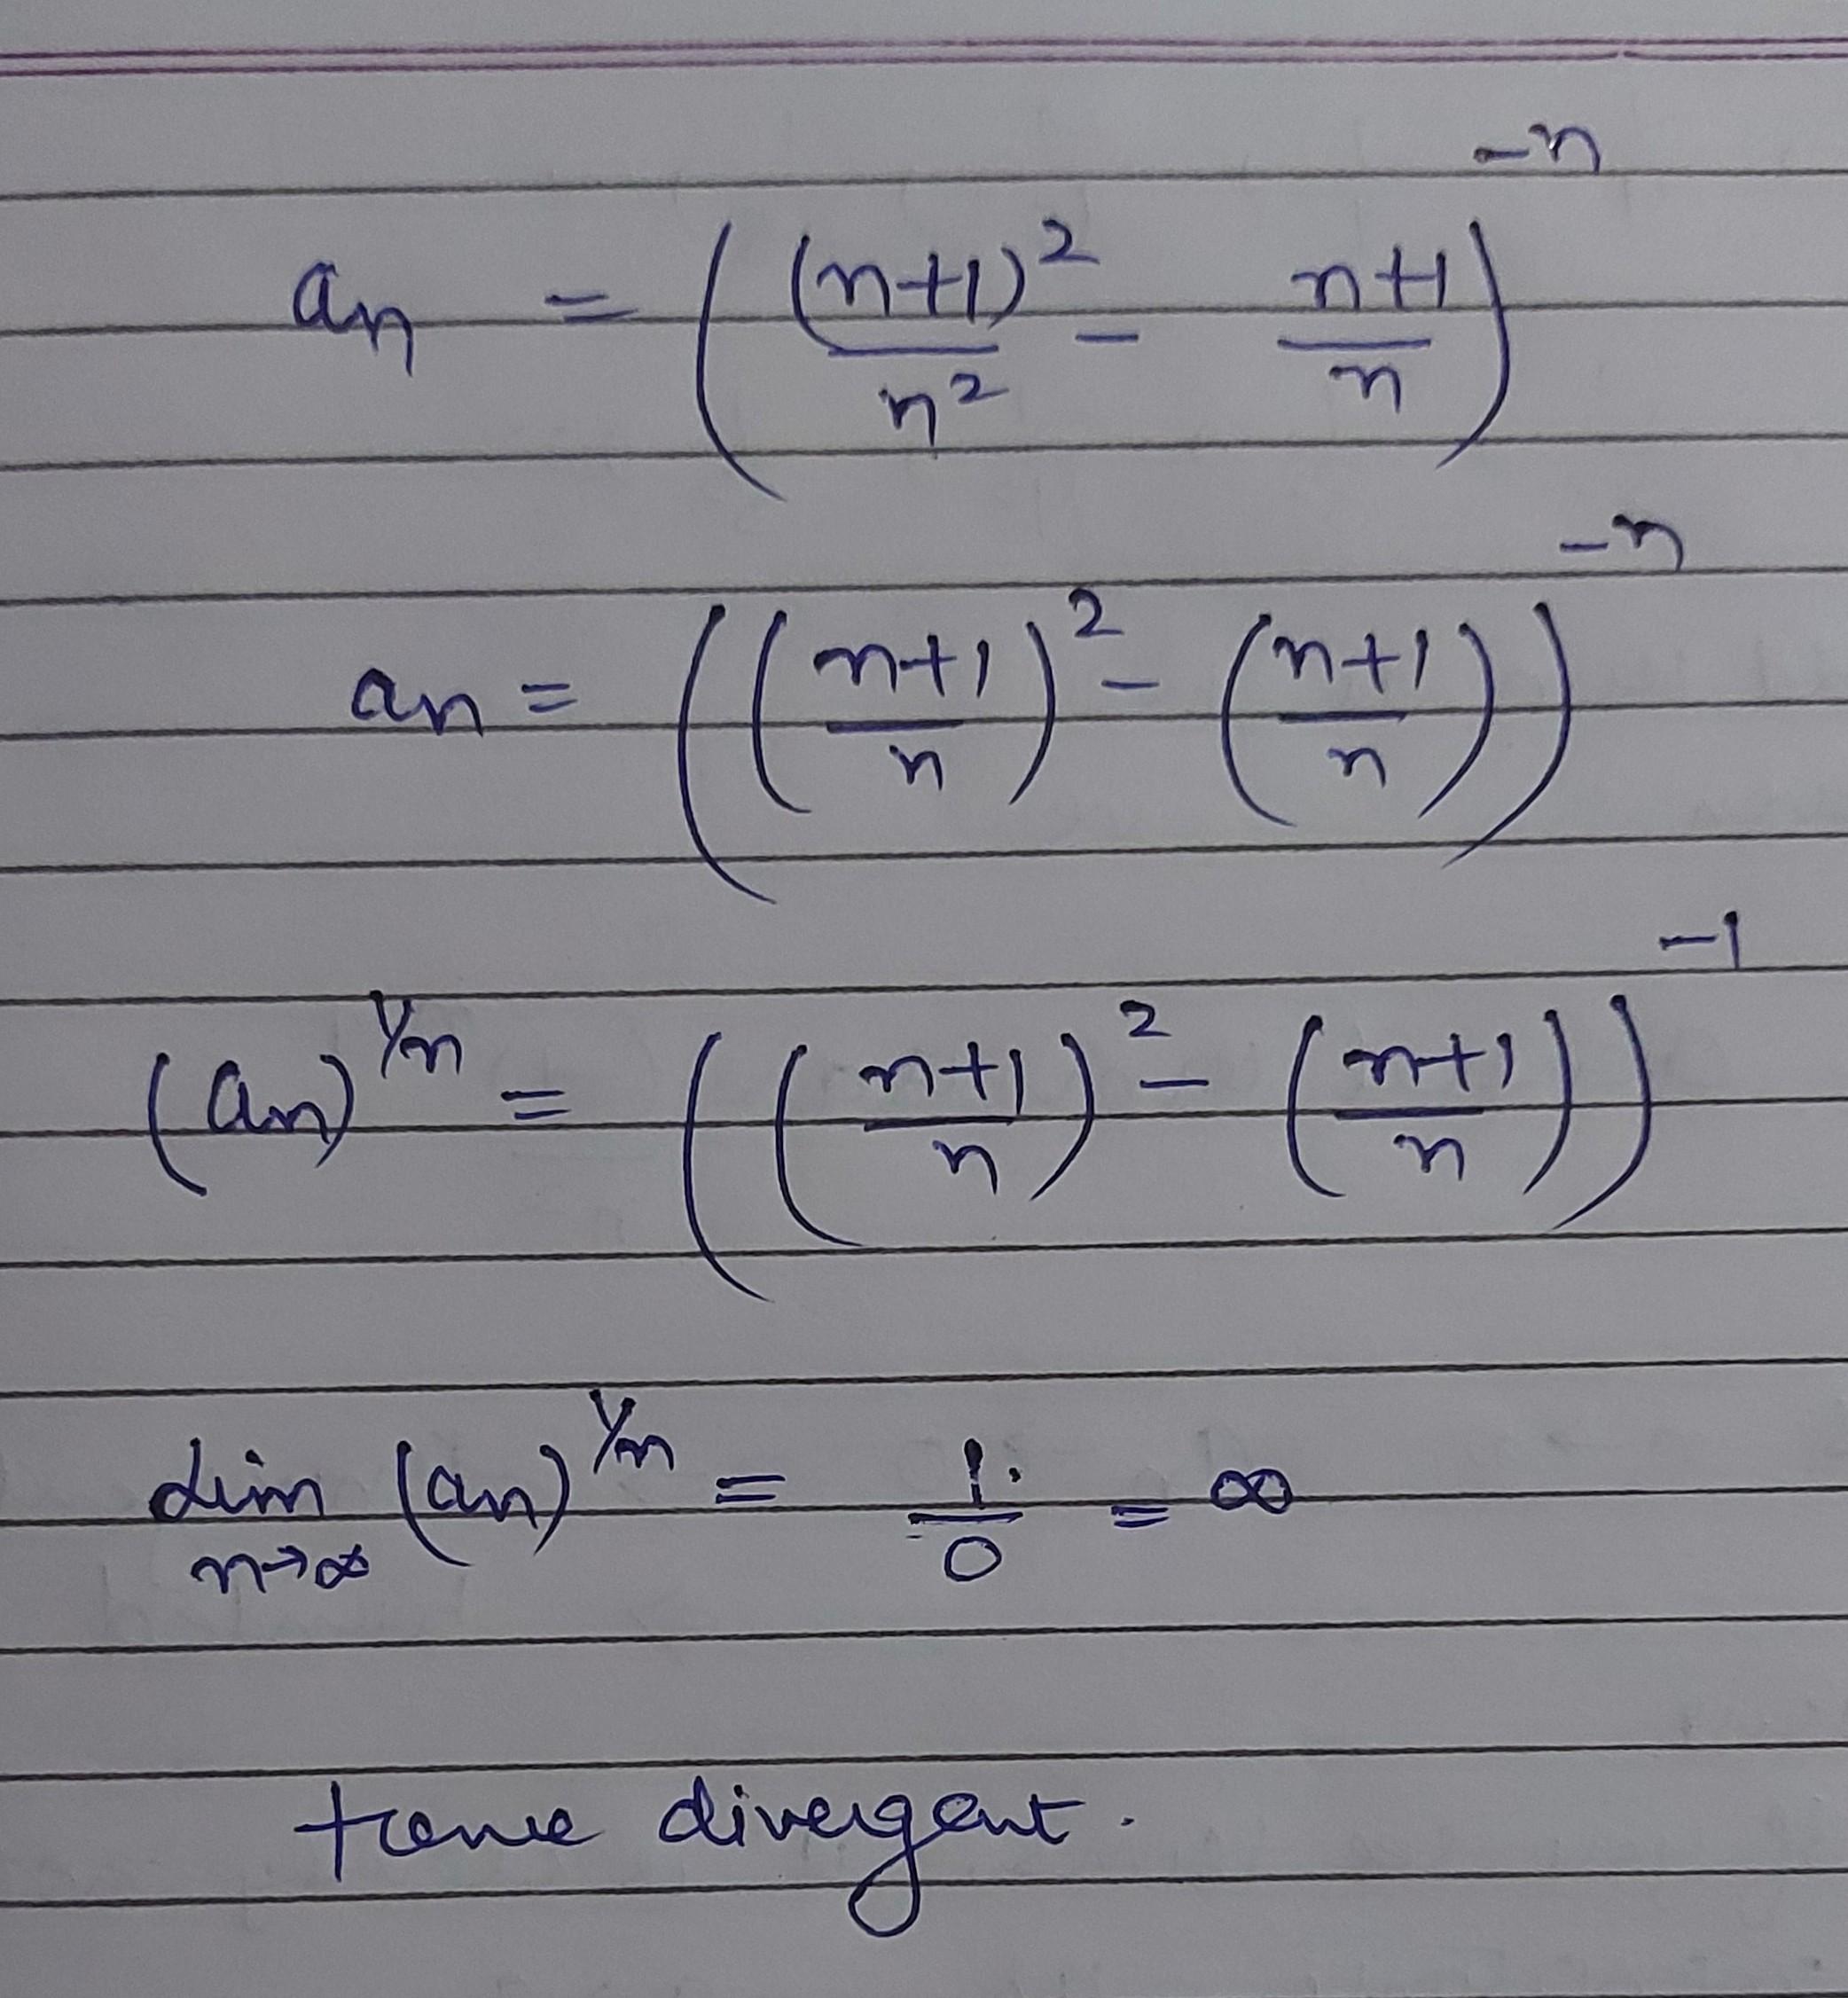 an = ( (n+1)² / n² − n+1 / n )⁻ⁿ
an = ( ( n+1 / n )² − ( n+1 / n ) )⁻ⁿ
(an)^1/n = ( ( n+1 / n )² − ( n+1 / n ) )⁻¹
lim n→∞ (an)^1/n = 1 / 0 = ∞
Hence divergent.